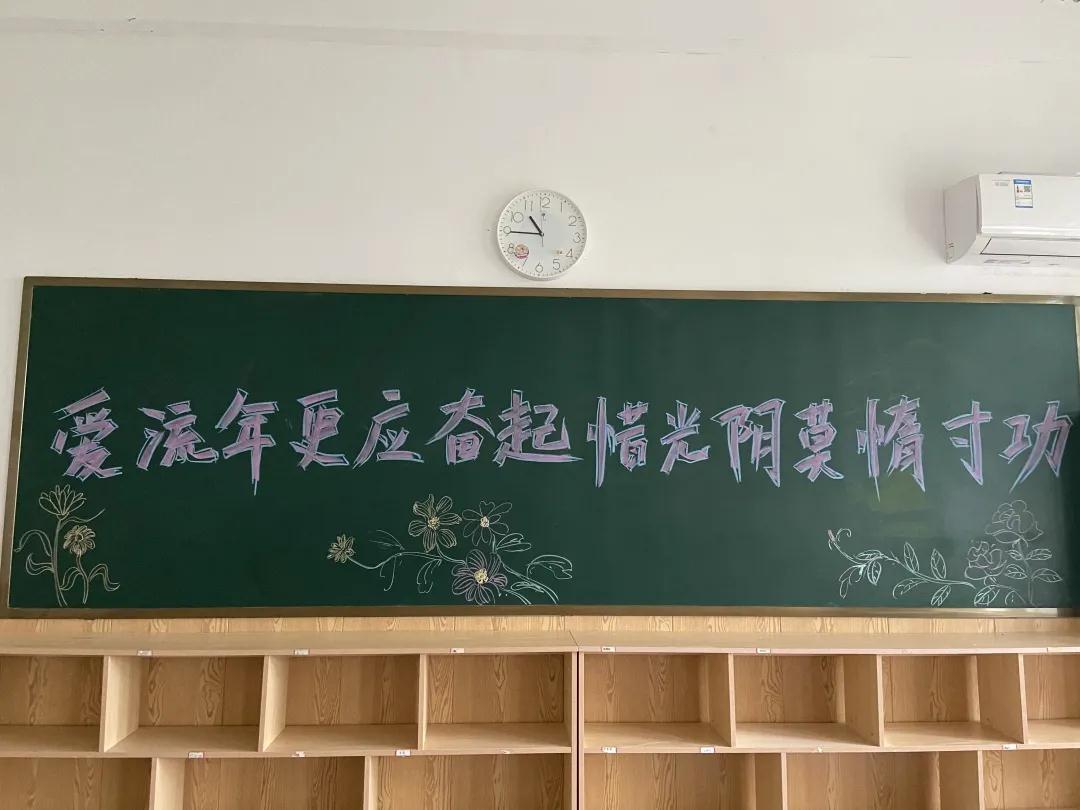 12
1
2
3
4
5
6
8
9
10
11
爱流年更应奋起惜光阴莫惰寸功